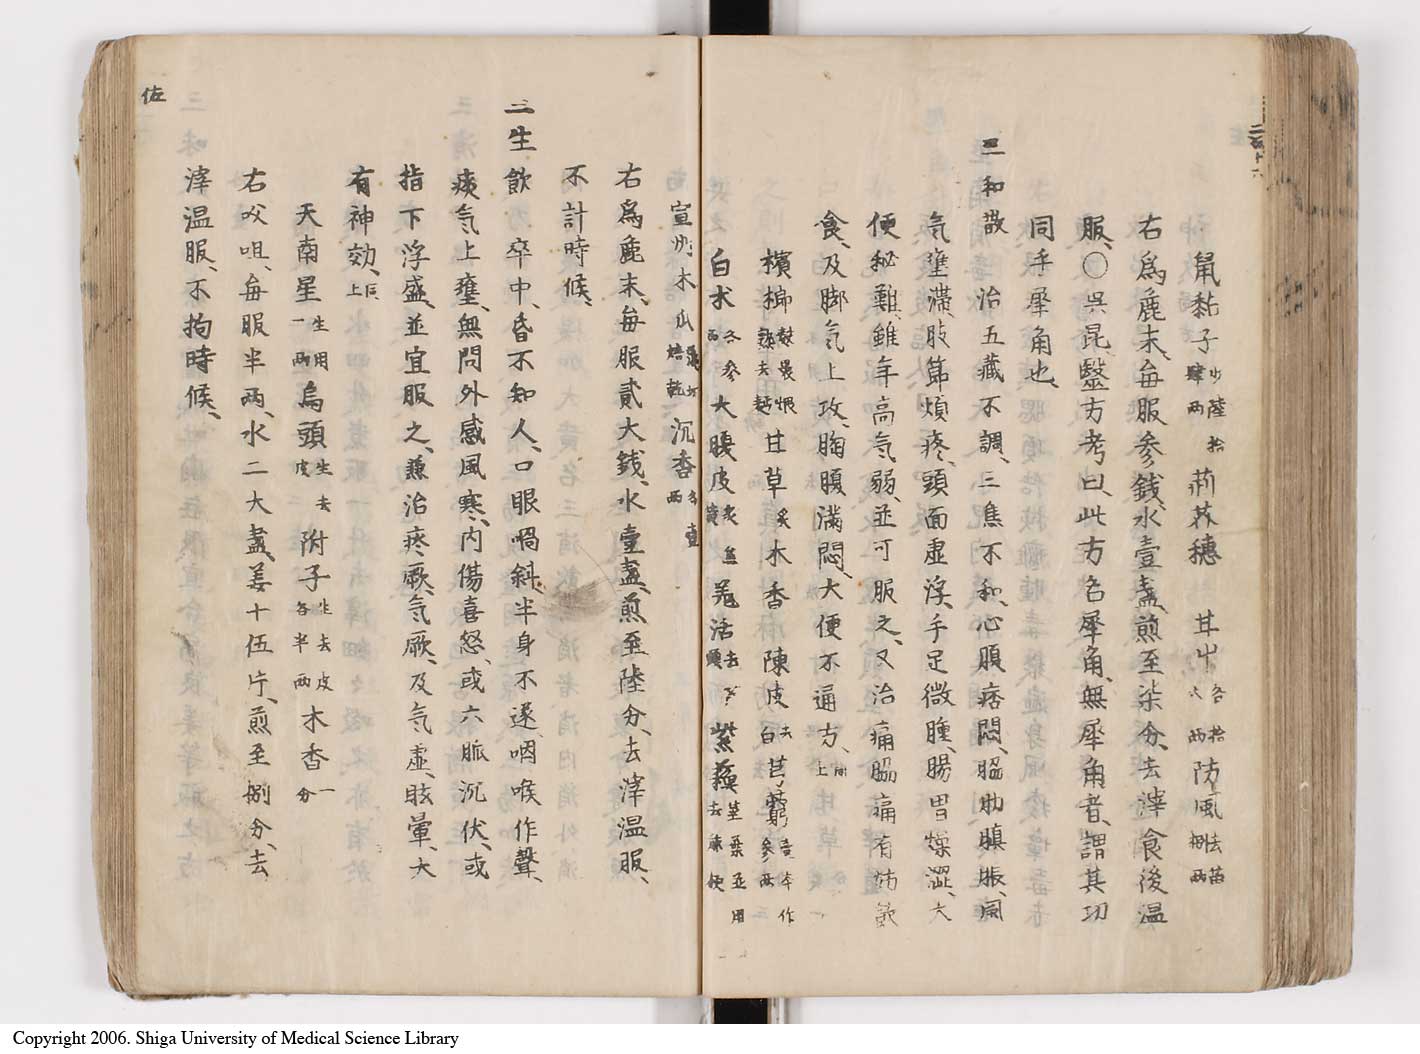 鼠黏子炒陸拾肆兩荊芥穗 甘艸各拾六兩防風去苗捌兩
右爲麁末、每服參錢、水壹盞、煎至柒分、去滓食後温
服、○吳昆、醫方考曰、此方名犀角、無犀角者、謂其功
同乎犀角也、
三和散 治五藏不調、三焦不和、心腹痞悶、脇肋䐜脹、風
気壅滿、肢節煩疼、頭面虚浮、手足微腫、腸胃燥澀、大
便秘難、雖年高気弱、並可服之、又治痛脇痛有妨飲
食、及脚気上攻、胸腹滿悶、大便不通方、同上
檳榔 甘草炙木香陳皮去白芎藭參兩 作
白朮各參兩大腹皮炙 羌活去 頭紫蘓莖葉並用去
宣州木瓜薄切焙乾沉香各壹兩
右爲麁末、每服貳大錢、水壹盞、煎至陸分、去滓温服、
不計時候、
三生飲 卒中、昏不知人、口眼喎斜、半身不遂咽喉作聲、
痰気上壅、無問外感風寒、内傷喜怒、或六脈沉伏、或
指下浮盛、並宜服之、兼治痰厥、気厥、及気虚、眩暈、大
有神効、同上
天南星生用一兩烏頭生去皮附子生去皮各半兩木香一分
右㕮咀、每服半兩、水二大盞、姜十伍片、煎至捌分、去
滓温服、不拘時候、
佐
Copyright 2006. Shiga University of Medical Science Library